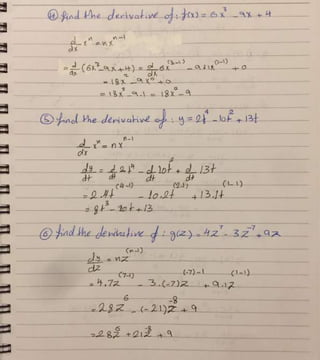 ④ find the derivative of : f(x) = 6x³ - 9x + 4
d/dx xⁿ = nxⁿ⁻¹
= d/dx (6x³ - 9x + 4) = d/dx 6x⁽³⁻¹⁾ - 9.1x⁽¹⁻¹⁾ + 0
= 18x² - 9x⁰ + 0
= 18x² - 9.1 = 18x² - 9
⑤ find the derivative of : y = 2t⁴ - 10t² + 13t
d/dx xⁿ = nxⁿ⁻¹
dy/dt = d/dt 2t⁴ - d/dt 10t² + d/dt 13t
= 2.4t⁽⁴⁻¹⁾ - 10.2t⁽²⁻¹⁾ + 13.1t⁽¹⁻¹⁾
= 8t³ - 20t + 13
⑥ find the derivative of : g(z) = 4z⁷ - 3z⁻⁷ + 9z
dy/dz = nz⁽ⁿ⁻¹⁾
= 4.7z⁽⁷⁻¹⁾ - 3.(-7)z⁽⁻⁷⁾⁻¹ + 9.1z⁽¹⁻¹⁾
= 28z⁶ - (-21)z⁻⁸ + 9
= 28z⁶ + 21z⁻⁸ + 9